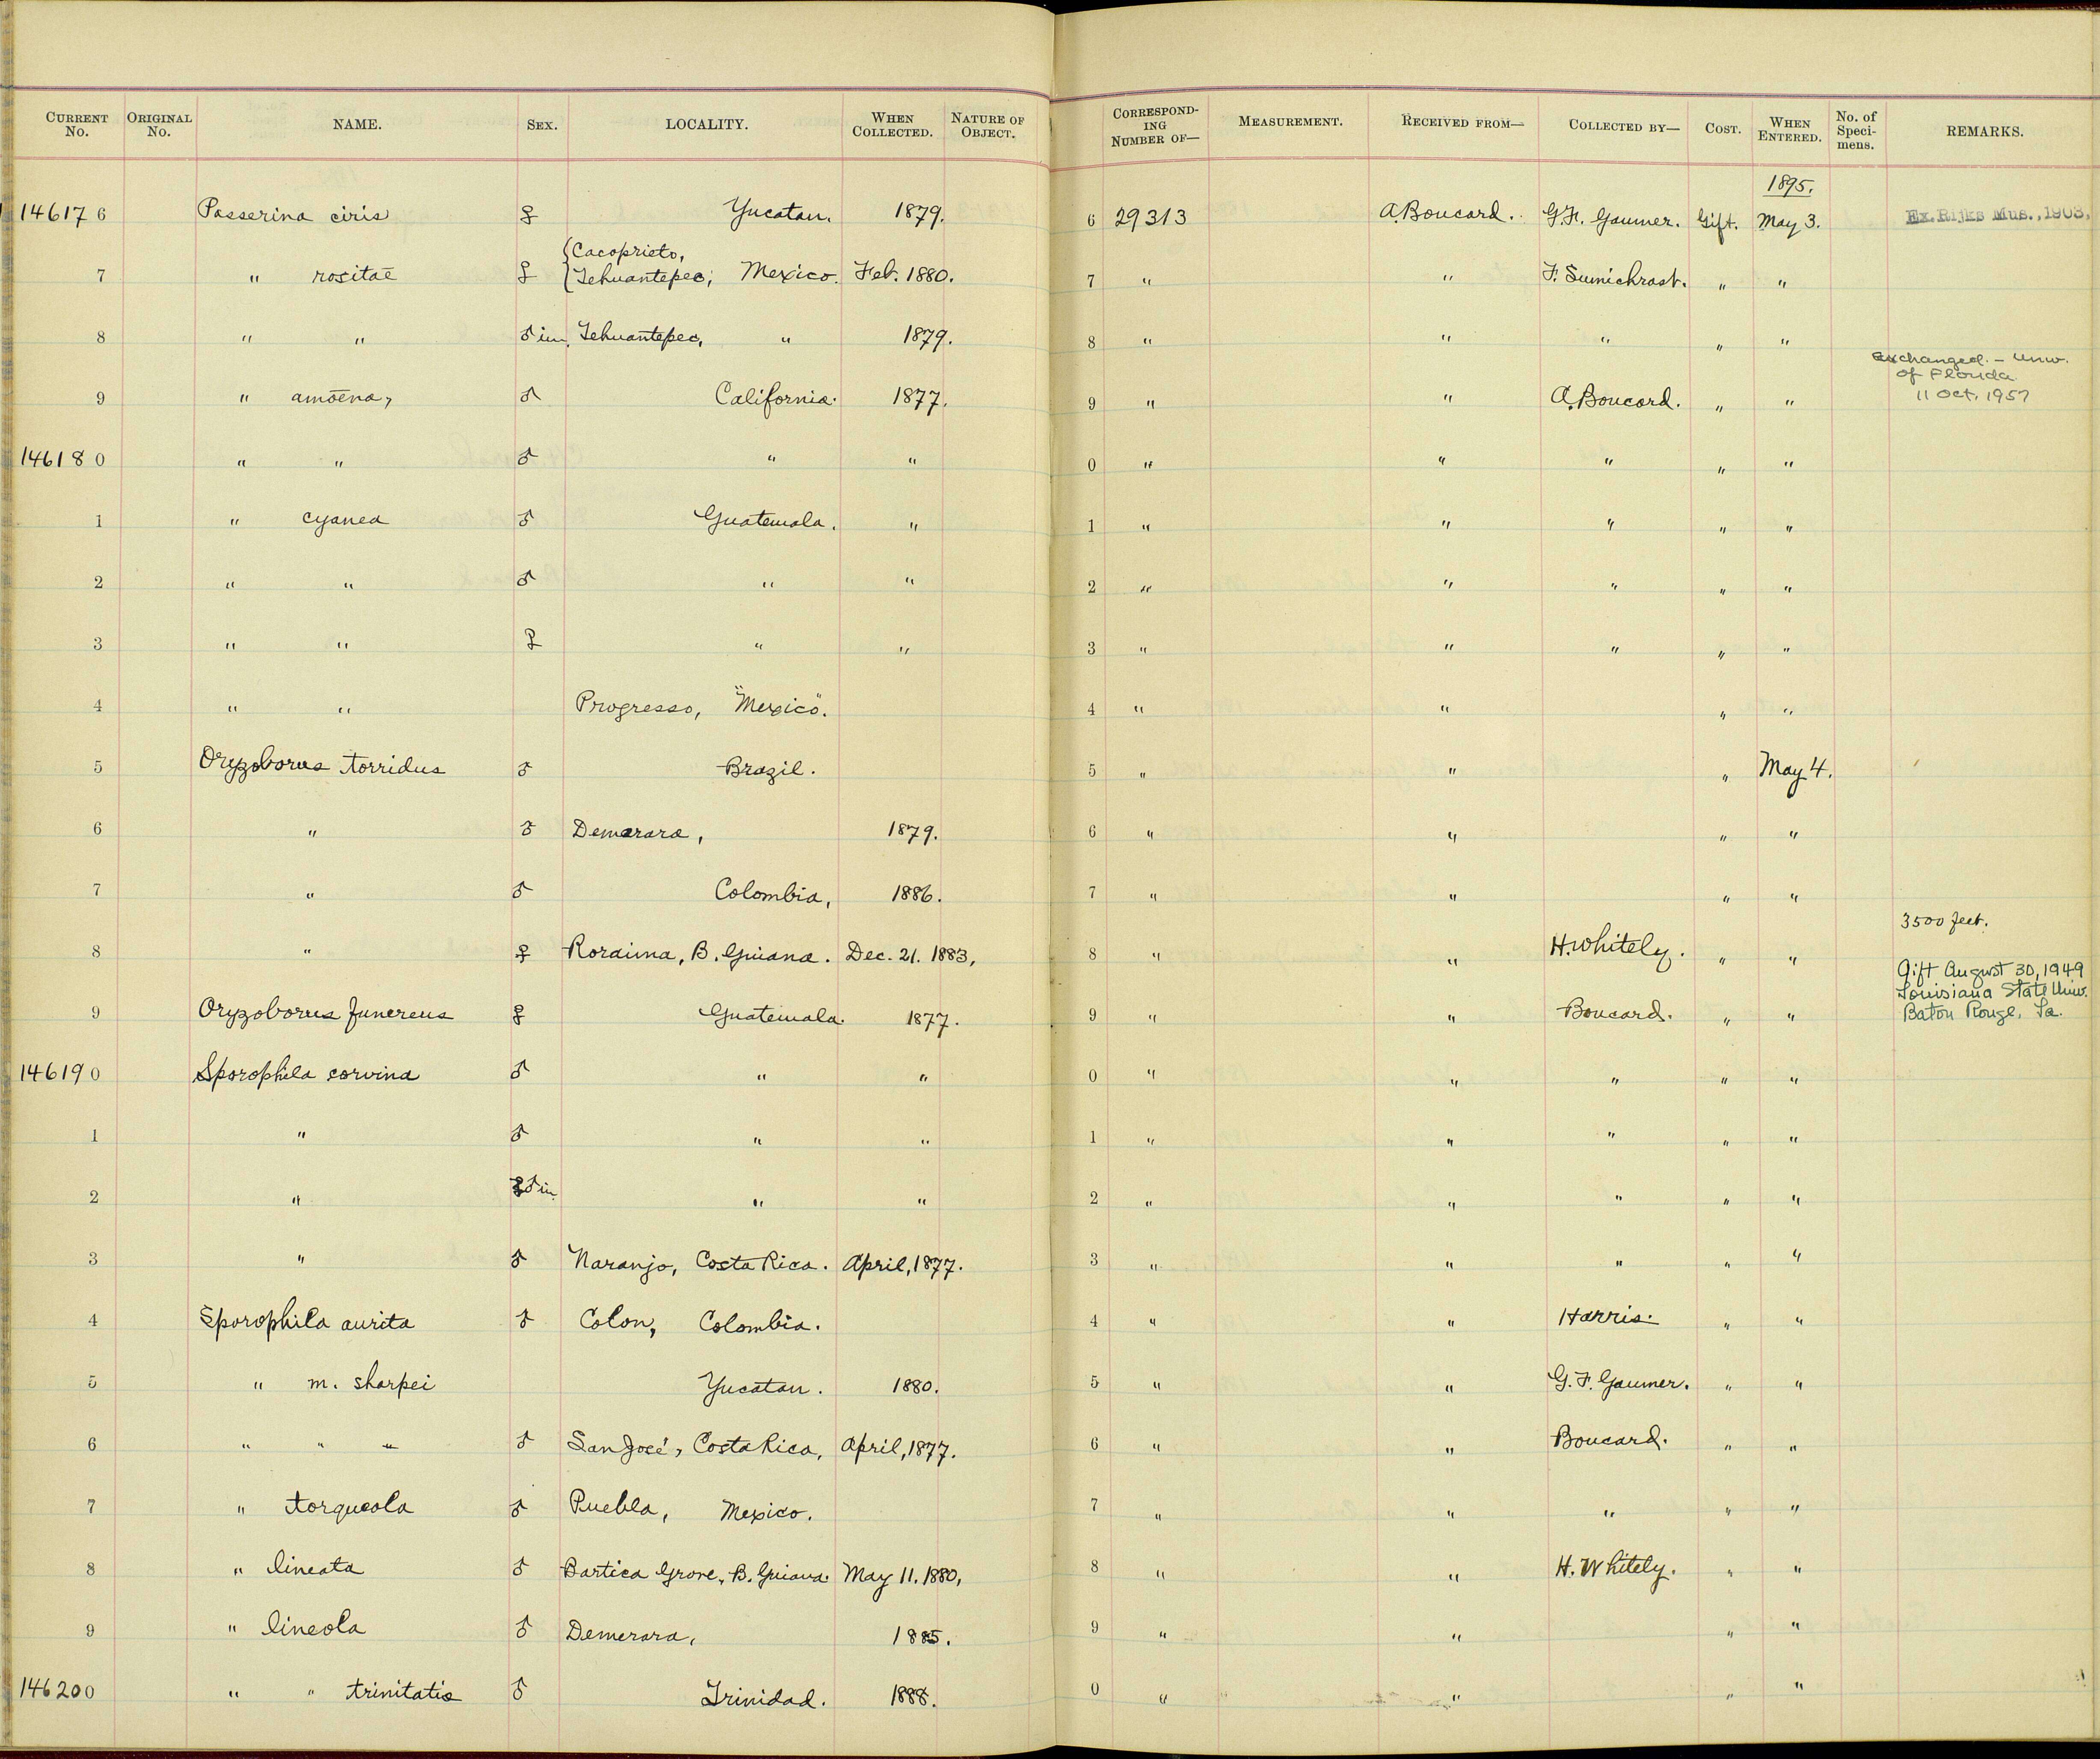 CURRENT No. ORIGINAL No. NAME. SEX. LOCALITY. WHEN COLLECTED. NATURE OF OBJECT. CORRESPOND-ING NUMBER OF— MEASUREMENT. RECEIVED FROM— COLLECTED BY— COST. WHEN ENTERED. No. of Speci-mens. REMARKS.
1895.
146176 Passerina ciris ♀ Yucatan. 1879. 6 29313 A. Boucard. G.F. Gaumer. Gift. May 3. Ex. Rijks Mus., 1903.
7 " rositae ♀ {Cacoprieto, Tehuantepec, Mexico. Feb. 1880. 7 " " F. Sumichrast. " "
8 " " ♂ im. Tehuantepec, " 1879. 8 " " " " "
9 " amoena, ♂ California. 1877. 9 " " A. Boucard. " " exchanged. - Univ. of Florida 11 Oct. 1957
146180 " " ♂ " " 0 " " " " "
1 " cyanea ♂ Guatemala. " 1 " " " " "
2 " " ♂ " " 2 " " " " "
3 " " ♀ " " 3 " " " " "
4 " " Progresso, "Mexico". 4 " " " "
5 Oryzoborus torridus ♂ Brazil. 5 " " " May 4.
6 " ♂ Demerara, 1879. 6 " " " "
7 " ♂ Colombia, 1886. 7 " " " "
8 " ♀ Roraima, B. Guiana. Dec. 21. 1883, 8 " " H. Whitely. " " 3500 feet.
9 Oryzoborus funereus ♀ Guatemala. 1877. 9 " " Boucard. " " Gift August 30, 1949 Louisiana State Univ. Baton Rouge, La.
146190 Sporophila corvina ♂ " " 0 " " " " "
1 " ♂ " " 1 " " " " "
2 " ♂ im " " 2 " " " " "
3 " ♂ Naranjo, Costa Rica. April, 1877. 3 " " " " "
4 Sporophila aurita ♂ Colon, Colombia. 4 " " Harris. " "
5 " m. sharpei Yucatan. 1880. 5 " " G. F. Gaumer. " "
6 " " " ♂ San José, Costa Rica, April, 1877. 6 " " Boucard. " "
7 " torqueola ♂ Puebla, Mexico. 7 " " " " "
8 " lineata ♂ Bartica Grove, B. Guiana. May 11. 1880, 8 " " H. Whitely. " "
9 " lineola ♂ Demerara, 1885. 9 " " " "
146200 " " trinitatis ♂ Trinidad. 1888. 0 " " " "